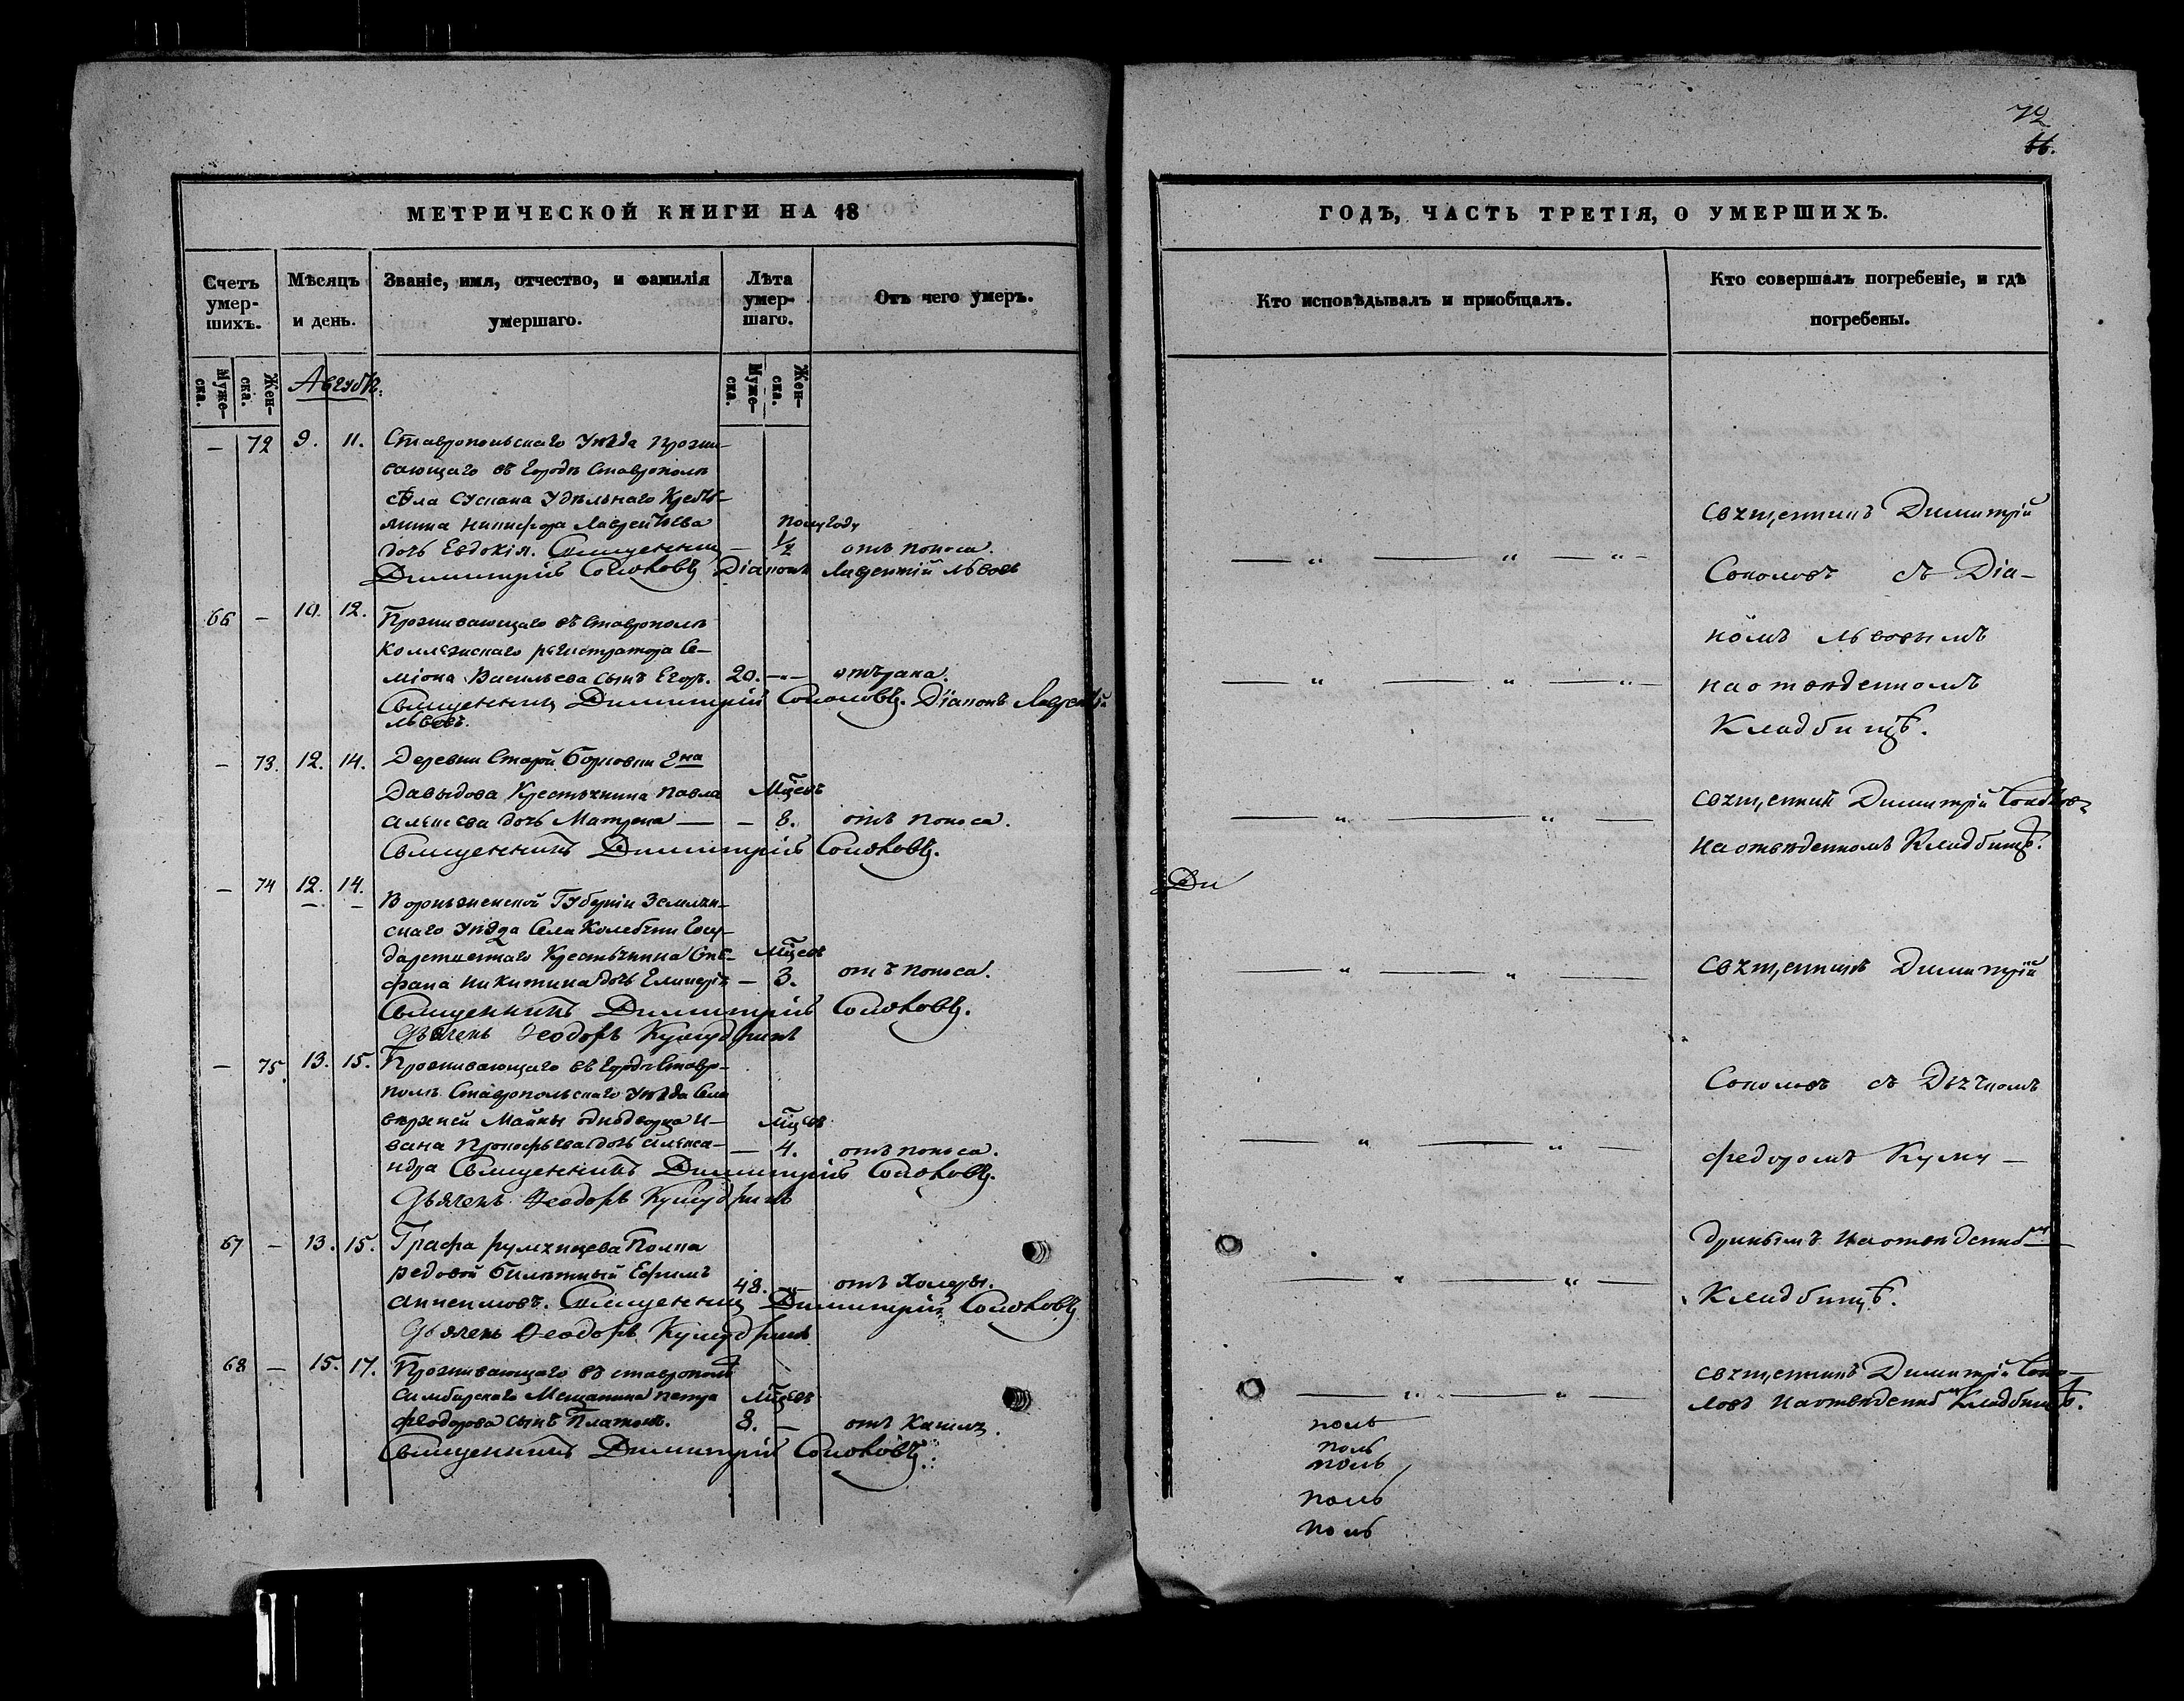 72
66.
МЕТРИЧЕСКОЙ КНИГИ НА 18
Счетъ умер-
шихъ.
Мѣсяцъ
и день.
Званіе, имя, отчество, и фамилія
умершаго.
Лѣта
умер-
шаго.
Отъ чего умеръ.
Муже-
ска.
Жен-
ска.
Августъ.
Муже-
ска.
Жен-
ска.
— 72 9. 11. Ставропольскаго Уѣзда прожи-
вающаго въ Городѣ Ставрополѣ
села Сускана Удѣльнаго Кресть-
янина Никифора Лаврентьева полугоду
дочь Евдокія. Священникъ — ½ отъ поноса.
Димитрій Соколовъ Діаконъ Лаврентій Львовъ
66 — 10. 12. Проживающаго въ Ставрополѣ
Коллежскаго регистратора Се-
міона Васильева сынъ Егоръ. 20. — отъ рака.
Священникъ Димитрій Соколовъ. Діаконъ Лаврентій
Львовъ.
— 73. 12. 14. Деревни Старой Борковки 2на
Давыдова Крестьянина Павла Мцевъ
дочь Матрена — — 8. отъ поноса.
Священникъ Димитрій Соколовъ.
— 74 12. 14.
Воронежской Губерніи Землян-
скаго Уѣзда Села Госу-
дарственнаго Крестьянина Сте- Мцевъ
фана Никитина дочь — 3. отъ поноса.
Священникъ Димитрій Соколовъ.
Дьячекъ Ѳеодоръ Кумудринъ
— 75. 13. 15. Проживающаго въ Городѣ Ставро-
полѣ Ставропольскаго Уѣзда Села
верхней Майны однодворца И- Мцевъ
вана Прокофьева дочь Алекса- — 4. отъ поноса.
ндра Священникъ Димитрій Соколовъ.
Дьячекъ Ѳеодоръ Кумудринъ
67 — 13. 15. Графа румянцева Полка
редовой билетный Ефимъ
Анисимовъ. 48. — отъ Холеры.
Священникъ Димитрій Соколовъ
Дьячекъ Ѳеодоръ Кумудринъ
68 — 15. 17. Проживающаго въ ставрополѣ
Симбирскаго Мещанина петра Мцевъ
феодорова сынъ Платонъ. 8. — отъ Кашля.
Священникъ Димитрій Соколовъ.
ГОДЪ, ЧАСТЬ ТРЕТІЯ, О УМЕРШИХЪ.
Кто исповѣдывалъ и приобщалъ.
Кто совершалъ погребеніе, и гдѣ
погребены.
священникъ Димитрій
Соколовъ съ Діа-
кономъ Львовымъ
на отведенномъ
Кладбищѣ.
священникъ Димитрій Соколовъ
на отведенномъ Кладбищѣ.
Ди
священникъ Димитрій
Соколовъ съ Дьячкомъ
федоромъ Куму —
дринымъ на отведенномъ
Кладбищѣ.
священникъ Димитрій Соко-
ловъ на отведенномъ Кладбищѣ.